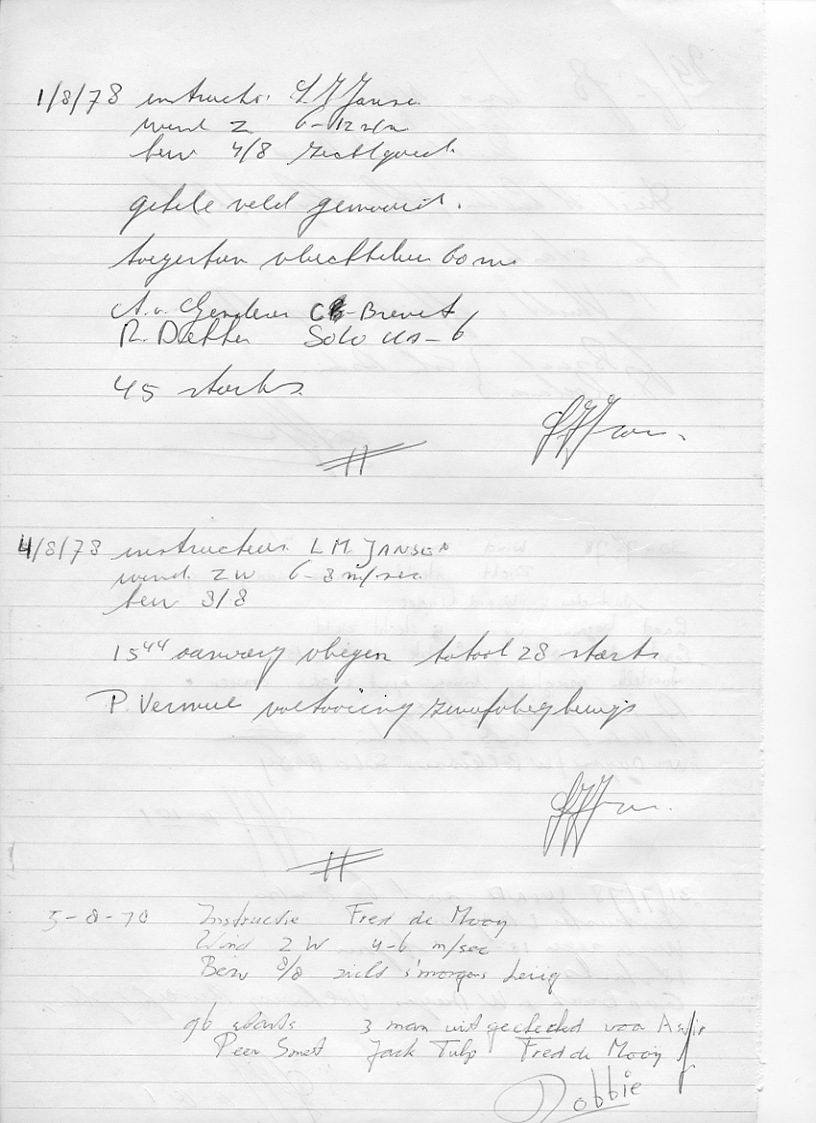 1/8/78 instructor. L J Jansen
wind Z 6-12 m/s
bew 4/8 zicht goed.
gehele veld gemaaid.
C-Brevet
R. Dekker Solo ka-6
45 starts
4/8/78 instructeur. L M. JANSEN
wind. ZW 6-8 m/sec
bew 3/8
15 44 aanvang vliegen totaal 28 starts
P. Vermue voltooiing zweefvliegbewijs
5-8-78 Instructie Fred de Mooy
Wind Z W 4-6 m/sec
Bew 8/8 zicht s'morgens heiig
96 starts 3 man uitgechecked voor Astir
Peer Smet Jack Tulp Fred de Mooy
Dobbie